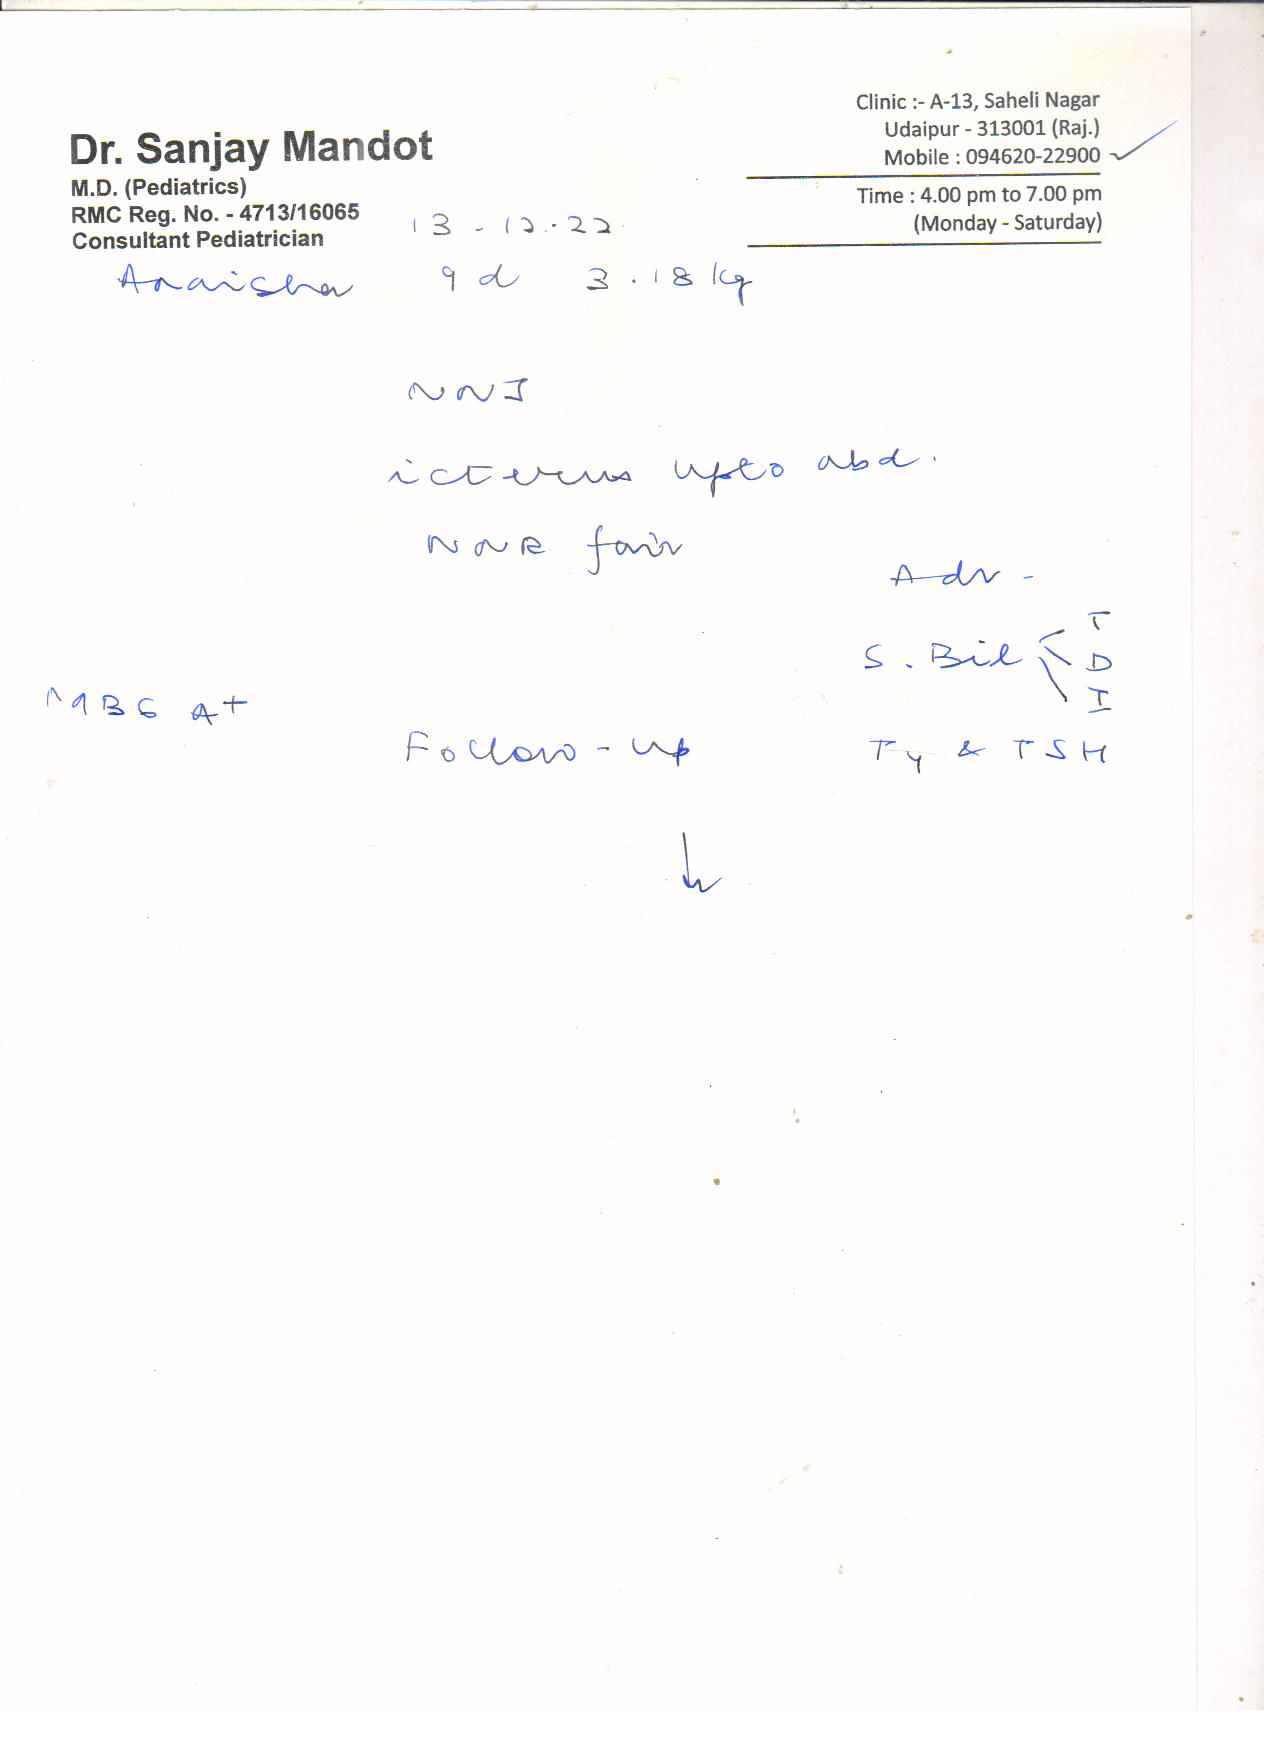 Clinic :- A-13, Saheli Nagar
Udaipur - 313001 (Raj.)
Mobile : 094620-22900
Time : 4.00 pm to 7.00 pm
(Monday - Saturday)
Dr. Sanjay Mandot
M.D. (Pediatrics)
RMC Reg. No. - 4713/16065
Consultant Pediatrician
13-12-22
Anaisha 9d 3.18 kg
NNJ
icterus upto abd.
NNR fair
Adv -
S. Bil T
D
I
MBG A+
Follow-up
T4 & TSH